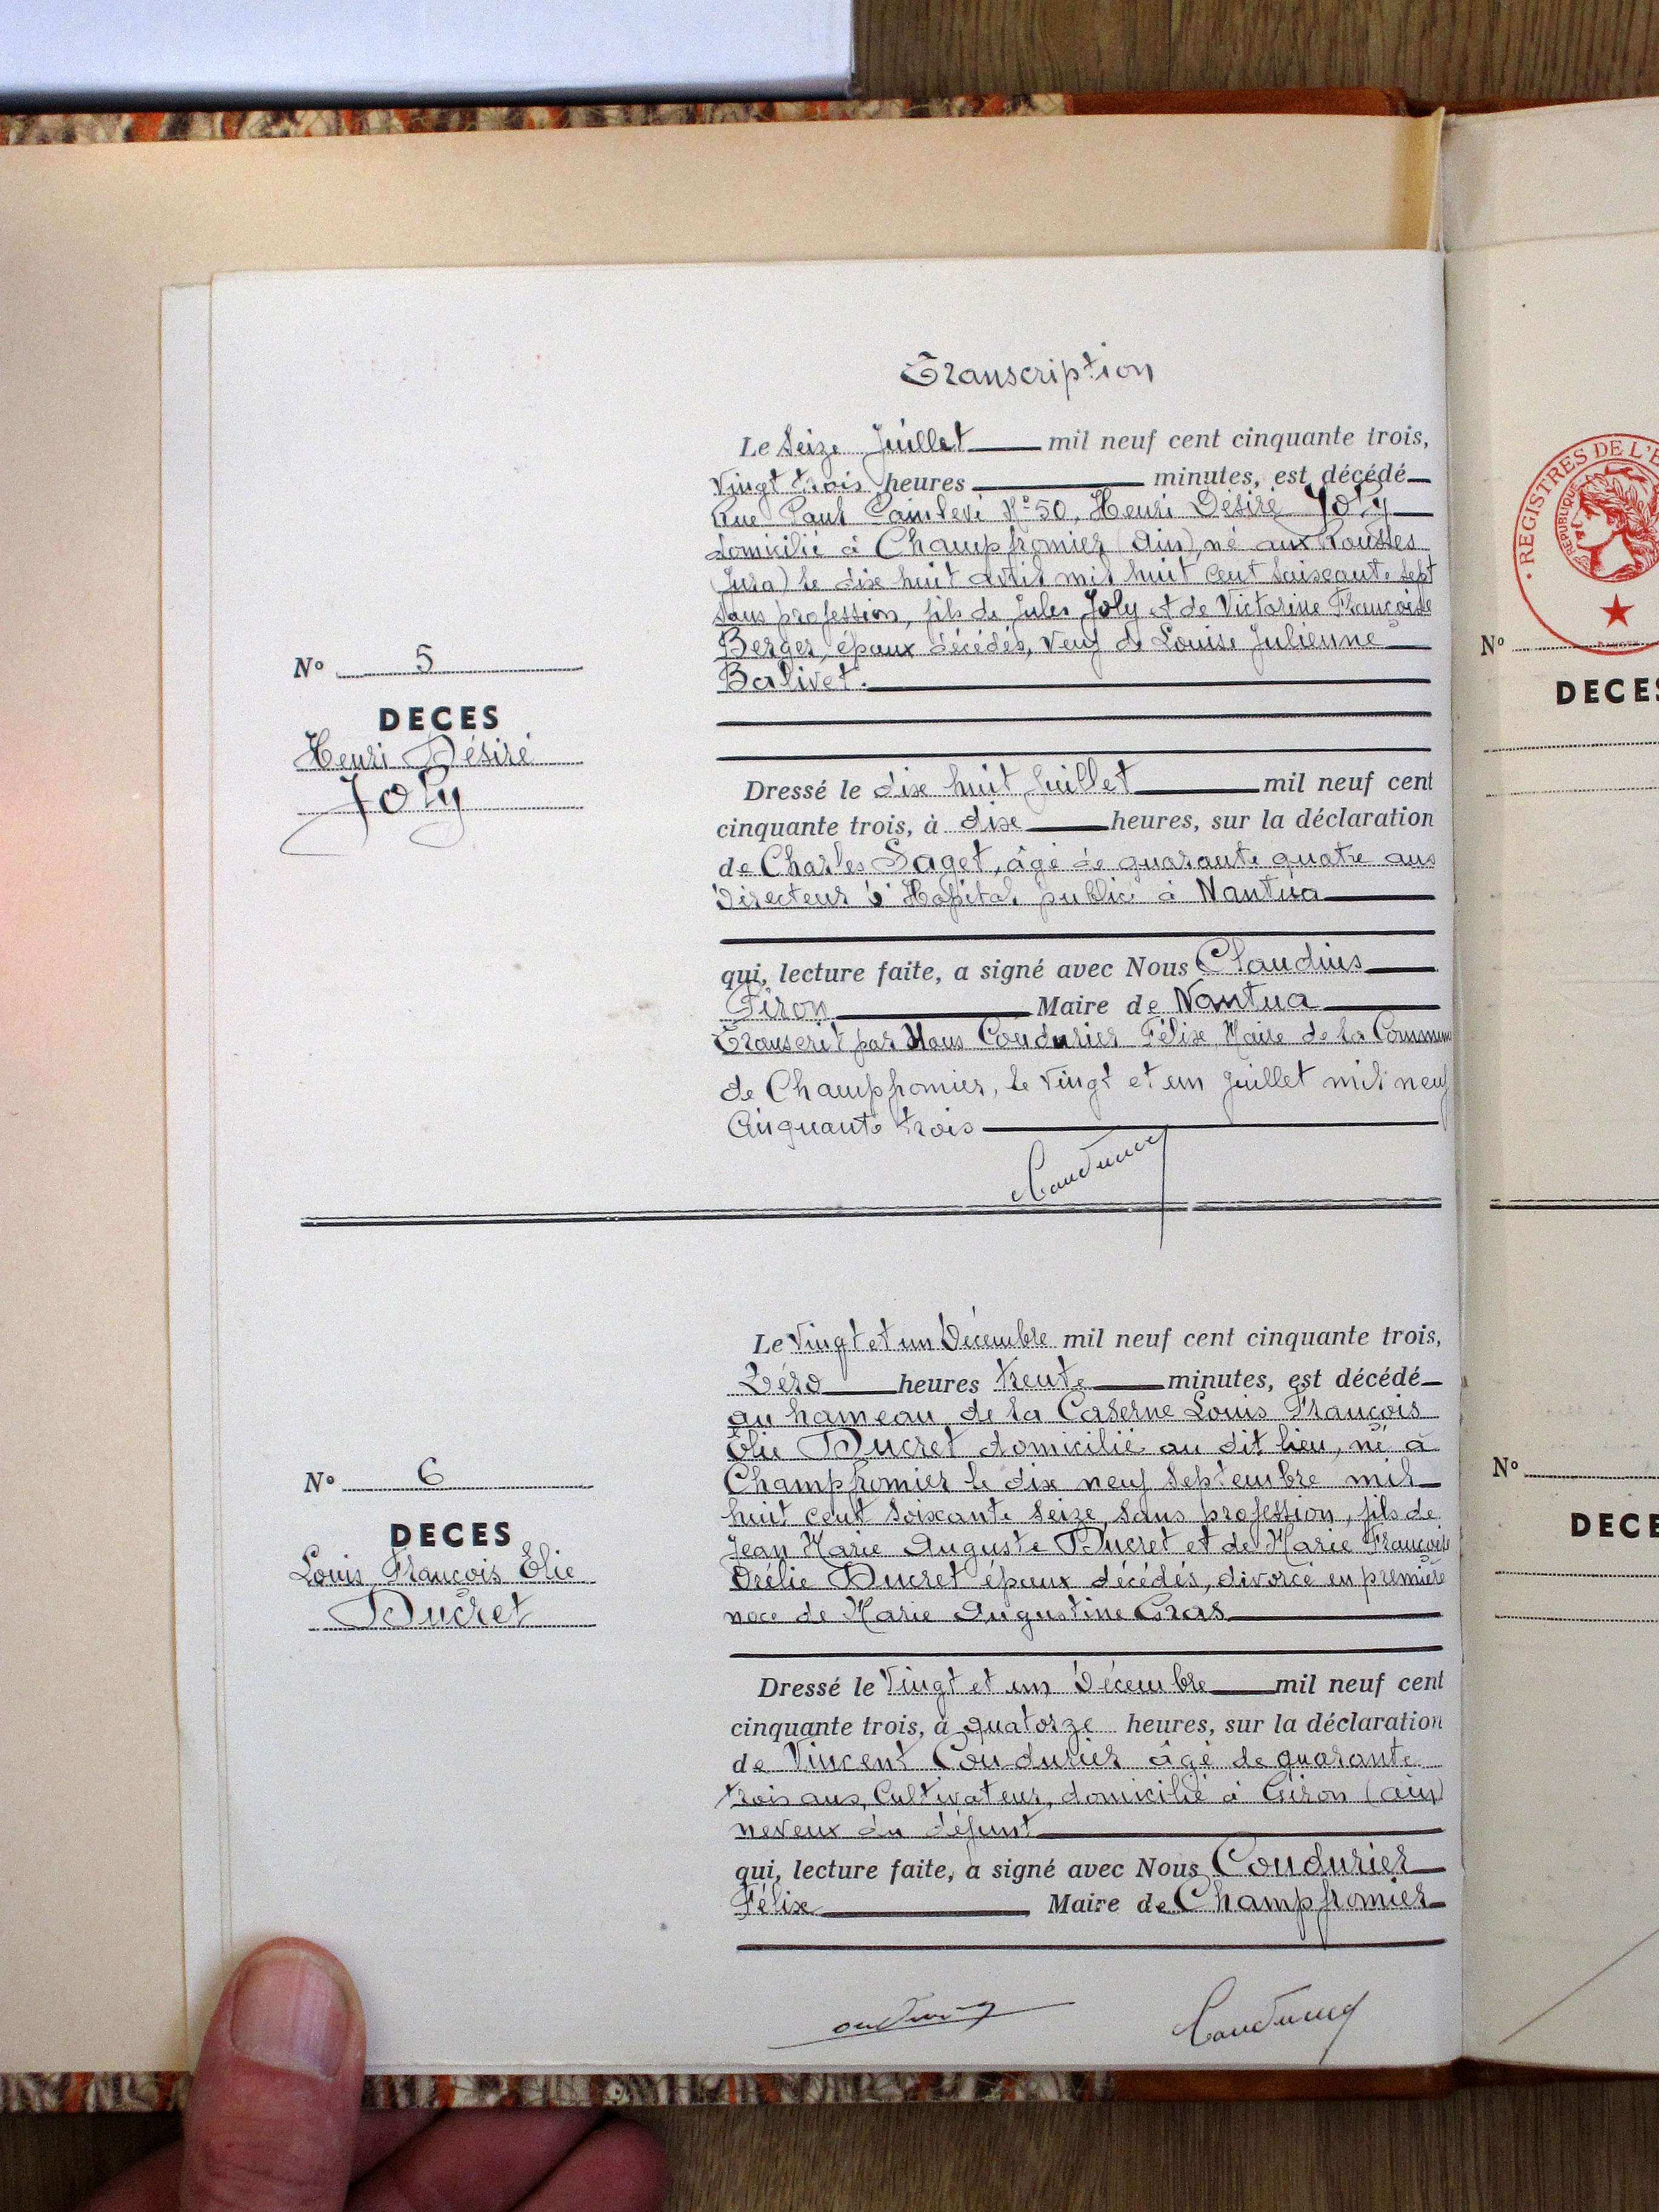 Transcription
Le Seize Juillet mil neuf cent cinquante trois,
Vingt trois heures minutes, est décédé
Rue Paul Painlevé N° 50, Henri Désiré Joly
domicilié à Champfromier (Ain), né aux Rousses
(Jura) le dix huit Avril mil huit cent soixante sept
sans profession, fils de Jules Joly et de Victorine Françoise
Berger, époux décédés, Veuf de Louise Julienne
Balivet.
N° 5
DECES
Henri Désiré
Joly
Dressé le dix huit Juillet mil neuf cent
cinquante trois, à dix heures, sur la déclaration
de Charles Saget, âgé de quarante quatre ans
Directeur d'Hôpital public à Nantua
qui, lecture faite, a signé avec Nous Claudius
Piron Maire de Nantua
Transcrit par Nous Coudurier Félix, Maire de la Commune
de Champfromier, le Vingt et un Juillet mil neuf
Cinquante trois
Coudurier
Le Vingt et un Décembre mil neuf cent cinquante trois,
Zéro heures trente minutes, est décédé
au hameau de la Caserne Louis François
Elie Ducret domicilié au dit lieu, né à
Champfromier le dix neuf Septembre mil
huit cent soixante seize, sans profession, fils de
Jean Marie Auguste Ducret et de Marie Françoise
Orélie Ducret époux décédés, divorcé en première
noce de Marie Augustine Gras
N° 6
DECES
Louis François Elie
Ducret
Dressé le Vingt et un Décembre mil neuf cent
cinquante trois, à quatorze heures, sur la déclaration
de Vincent Coudurier âgé de quarante
trois ans, Cultivateur, domicilié à Giron (ain)
neveux du défunt
qui, lecture faite, a signé avec Nous Coudurier
Félix Maire de Champfromier
Coudurier
REGISTRES DE L'E
REPUBLIQUE
N°
DECES
N°
DECE